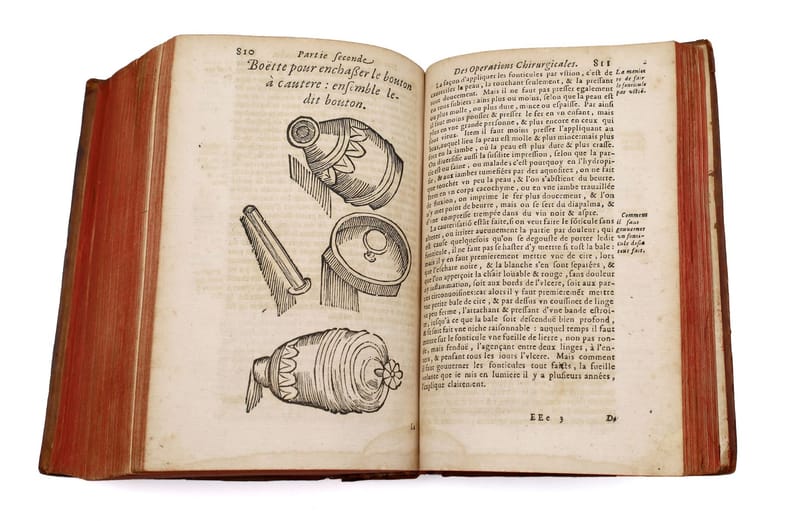 810
Partie seconde
Boëtte pour enchaßer le bouton
à cautere : ensẽmble le-
dit bouton.
la
Des Operations Chirurgicales. 811
La façon d'appliquer les fonticules par vstion, c'est de
cauteriser la peau, la touchant seulement, & la pressant
tout doucement. Mais il ne faut pas presser egalement
en tous subiets: ains plus ou moins, selon que la peau est
ou plus molle, ou plus dure, mince ou espaisse. Par ainsi
il faut moins presser & presser le fer en vn enfant, mais
plus en vne grande personne, & plus encore en ceux qui
sont vieux. Item il faut moins presser l'appliquant au
bras, auquel lieu la peau est molle & plus mince: mais plus
fort en la iambe, où la peau est plus dure & plus crasse.
On diuersifie aussi la susdite impression, selon que la par-
tie est ou saine, ou malade; c'est pourquoy en l'hydropi-
sie, & aux iambes tumefiées par des aquositez, on ne fait
que toucher vn peu la peau, & l'on s'abstient du beurre.
Mais en vn corps cacochyme, ou en vne iambe trauaillée
de fluxion, on imprime le fer plus doucement, & l'on
n'y met point de beurre, mais on se sert du diapalma, &
d'vne compresse trempée dans du vin noit & aspre.
La cauterisatiõ estãt faite, si on veut faire le fõticule sans
vlcerer, ou irriter aucunement la partie par douleur, qui
est cause quelquesfois qu'on se degouste de porter ledit
fonticule, il ne faut pas se haster d'y mettre si tost la bale:
mais il y en faut premierement mettre vne de cire, lors
que l'eschare noire, & la blanche s'en sont separées, &
que l'on apperçoit la chair loüable & rouge, sans douleur
ny inflammation, soit aux bords de l'vlcere, soit aux par-
ties circonuoisines: car alors il y faut premieremẽt mettre
vne petite bale de cire, & par dessus vn coussinet de linge
vn peu ferme, l'atachant & pressant d'vne bande estroi-
te, iusqu'à ce que la bale soit descenduë bien profond,
& se soit fait vne niche raisonnable: auquel temps il faut
mettre sur le fonticule vne fueille de lierre, non pas ron-
de, mais fenduë, l'agençant entre deux linges, à l'en-
uers, & pensant tous les iours l'vlcere. Mais comment
il faut gouuerner les fonticules tout faicts, la fueille
volante que ie mis en lumiere il y a plusieurs années,
l'explique clairement.
La maniere
de faire
le fonticule
par vstiõ.
Comment
il faut
gouuerner
vn fonti-
cule desia
tout fait.
EEe 3
De